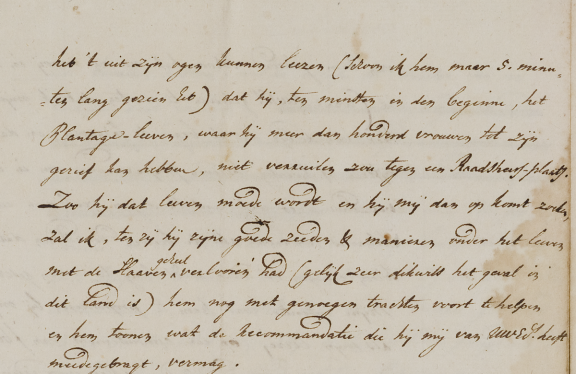 heb 't uit zijn ogen kunnen leezen (schoon ik hem maar 5. minu-
ten lang gezien heb) dat hij, ten minsten in den beginne, het
Plantage-leeven, waar hij meer dan honderd vrouwen tot zijn
gerief kan hebben, niet verruilen zou tegen een Raadsheers-plaats.
Zoo hij dat leeven moede wordt en hij mij dan op komt zoeken,
zal ik, ten zij hij zijne goede zeeden & manieren onder het leeven
met de Slaaven geheel verlooren had (gelijk zeer dikwils het geval in
dit land is) hem nog met genoegen trachten voort te helpen
en hem toonen wat de Recommandatie die hij mij van UWEd. heeft
meedegebragt, vermag.